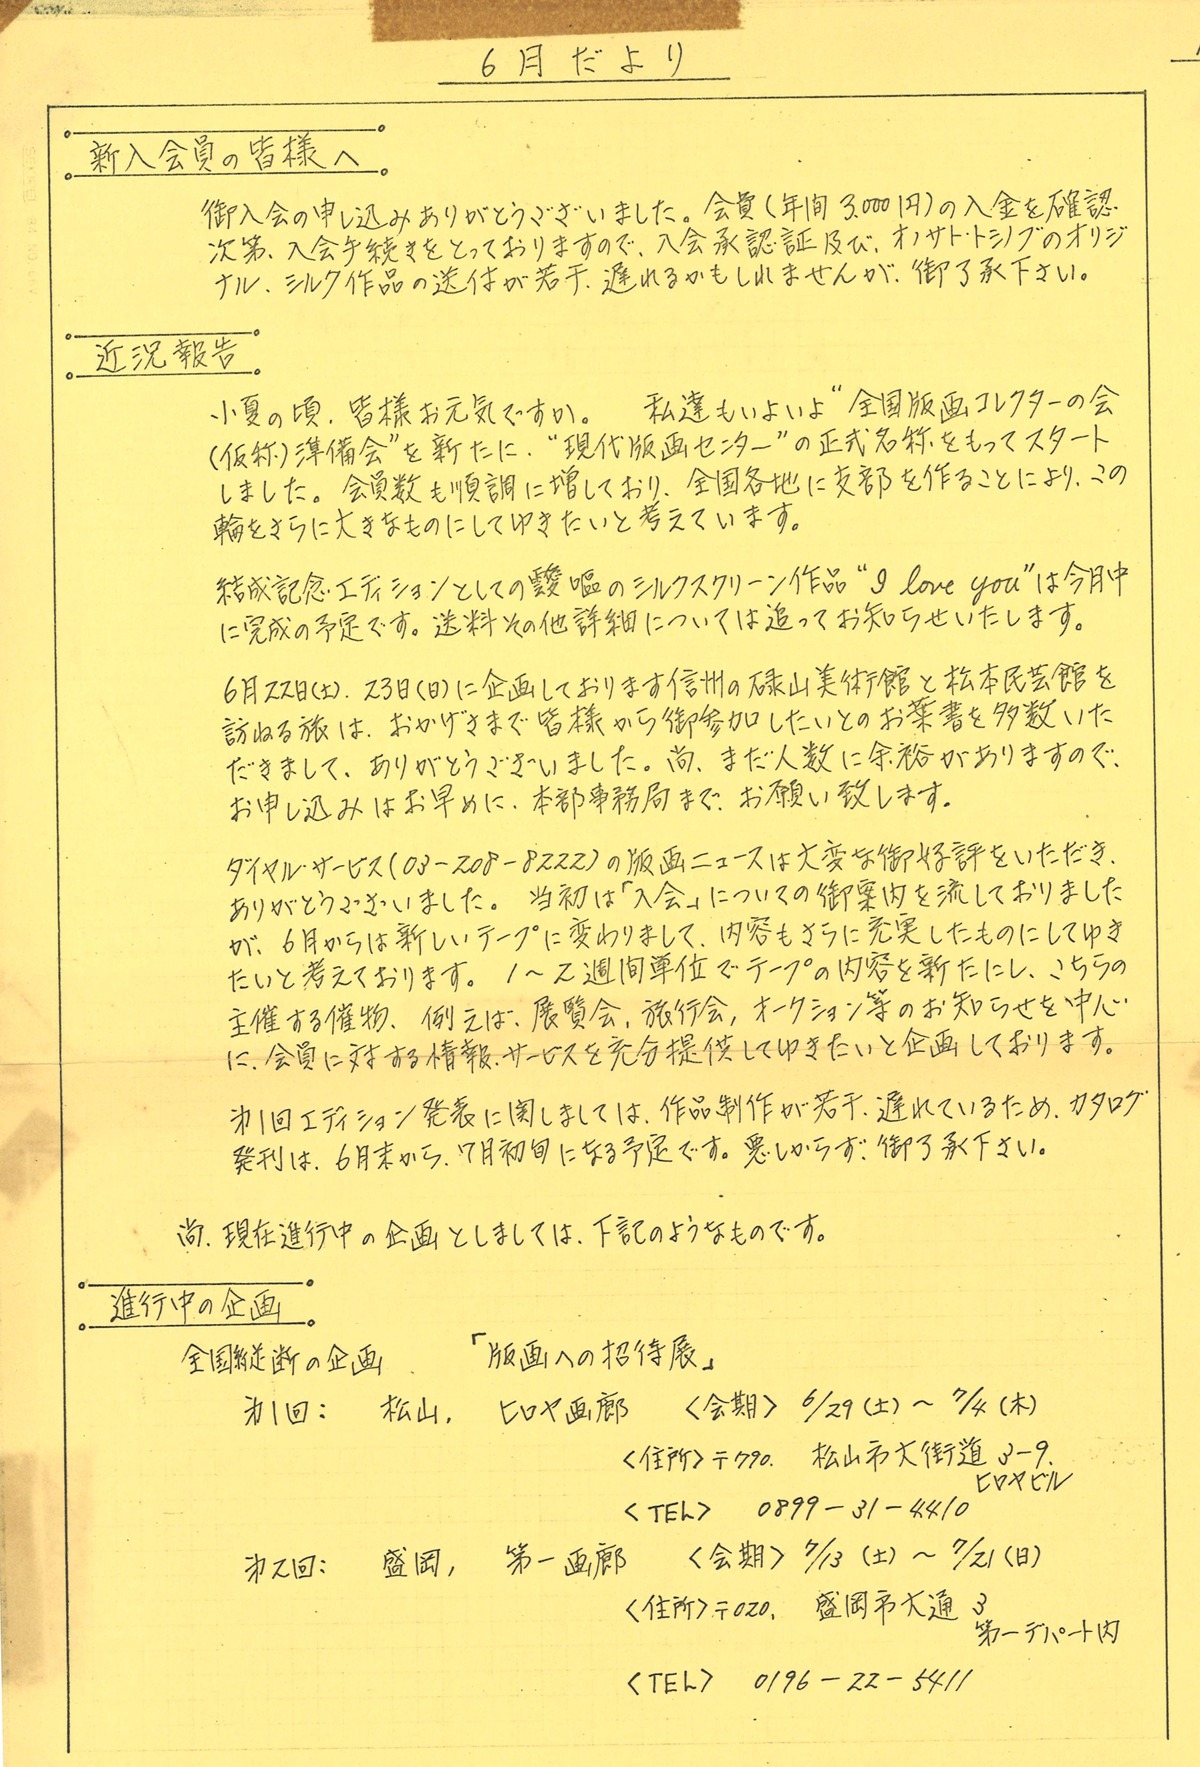 6月だより
新入会員の皆様へ
御入会の申し込みありがとうございました。会費(年間3,000円)の入金を確認
次第、入会手続きをとっておりますので、入会承認証及び、オノサト・トシノブのオリジ
ナル、シルク作品の送付が若干、遅れるかもしれませんが、御了承下さい。
近況報告
小夏の頃、皆様お元気ですか。 私達もいよいよ“全国版画コレクターの会
(仮称)準備会”を新たに、“現代版画センター”の正式名称をもってスタート
しました。会員数も順調に増しており、全国各地に支部を作ることにより、この
輪をさらに大きなものにしてゆきたいと考えています。
結成記念エディションとしての靉嘔のシルクスクリーン作品“I love you”は今月中
に完成の予定です。送料その他詳細については追ってお知らせいたします。
6月22日(土)、23日(日)に企画しております信州の碌山美術館と松本民芸館を
訪ねる旅は、おかげさまで皆様から御参加したいとのお葉書を多数いた
だきまして、ありがとうございました。尚、まだ人数に余裕がありますので、
お申し込みはお早めに、本部事務局まで、お願い致します。
ダイヤル・サービス(03-208-8222)の版画ニュースは大変な御好評をいただき、
ありがとうございました。当初は「入会」についての御案内を流しておりました
が、6月からは新しいテープに変わりまして、内容もさらに充実したものにしてゆき
たいと考えております。1～2週間単位でテープの内容を新たにし、こちらの
主催する催物、例えば、展覧会，旅行会，オークション等のお知らせを中心
に、会員に対する情報・サービスを充分提供してゆきたいと企画しております。
第1回エディション発表に関しましては、作品制作が若干、遅れているため、カタログ
発刊は、6月末から、7月初旬になる予定です。悪しからず、御了承下さい。
尚、現在進行中の企画としましては、下記のようなものです。
進行中の企画
全国縦断の企画 「版画への招待展」
第1回： 松山， ヒロヤ画廊 〈会期〉 6/29(土)～7/4(木)
〈住所〉〒790. 松山市大街道3-9.
ヒロヤビル
〈TEL〉 0899-31-4410
第2回： 盛岡， 第一画廊 〈会期〉 7/13(土)～7/21(日)
〈住所〉〒020. 盛岡市大通3
第一デパート内
〈TEL〉 0196-22-5411